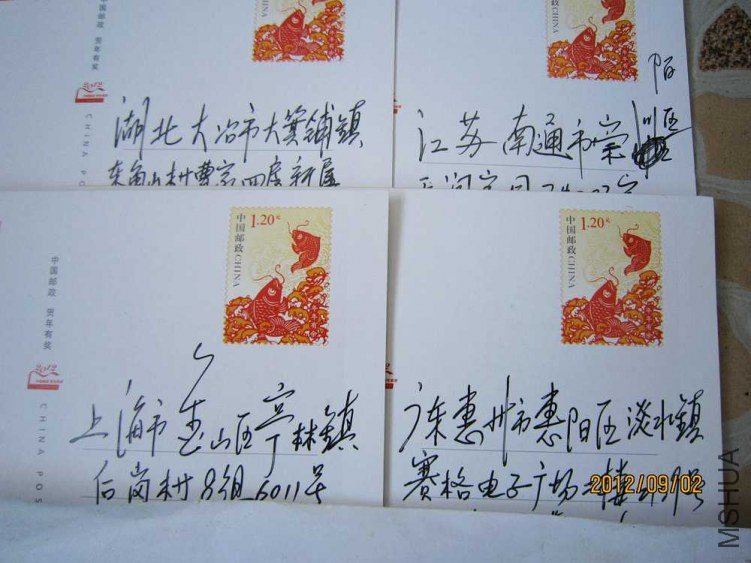 中国邮政 贺年有奖
2012
CHINA PO
湖北大冶市大箕铺镇
东角山村曹家四房新屋
陌
江苏南通市崇川区
中国邮政 CHINA
1.20元
中国邮政 贺年有奖
2012
CHINA POS
上海市金山区亭林镇
后岗村8组6011号
中国邮政 CHINA
1.20元
广东惠州市惠阳区淡水镇
赛格电子广场二楼
2012/09/02
MSHUA